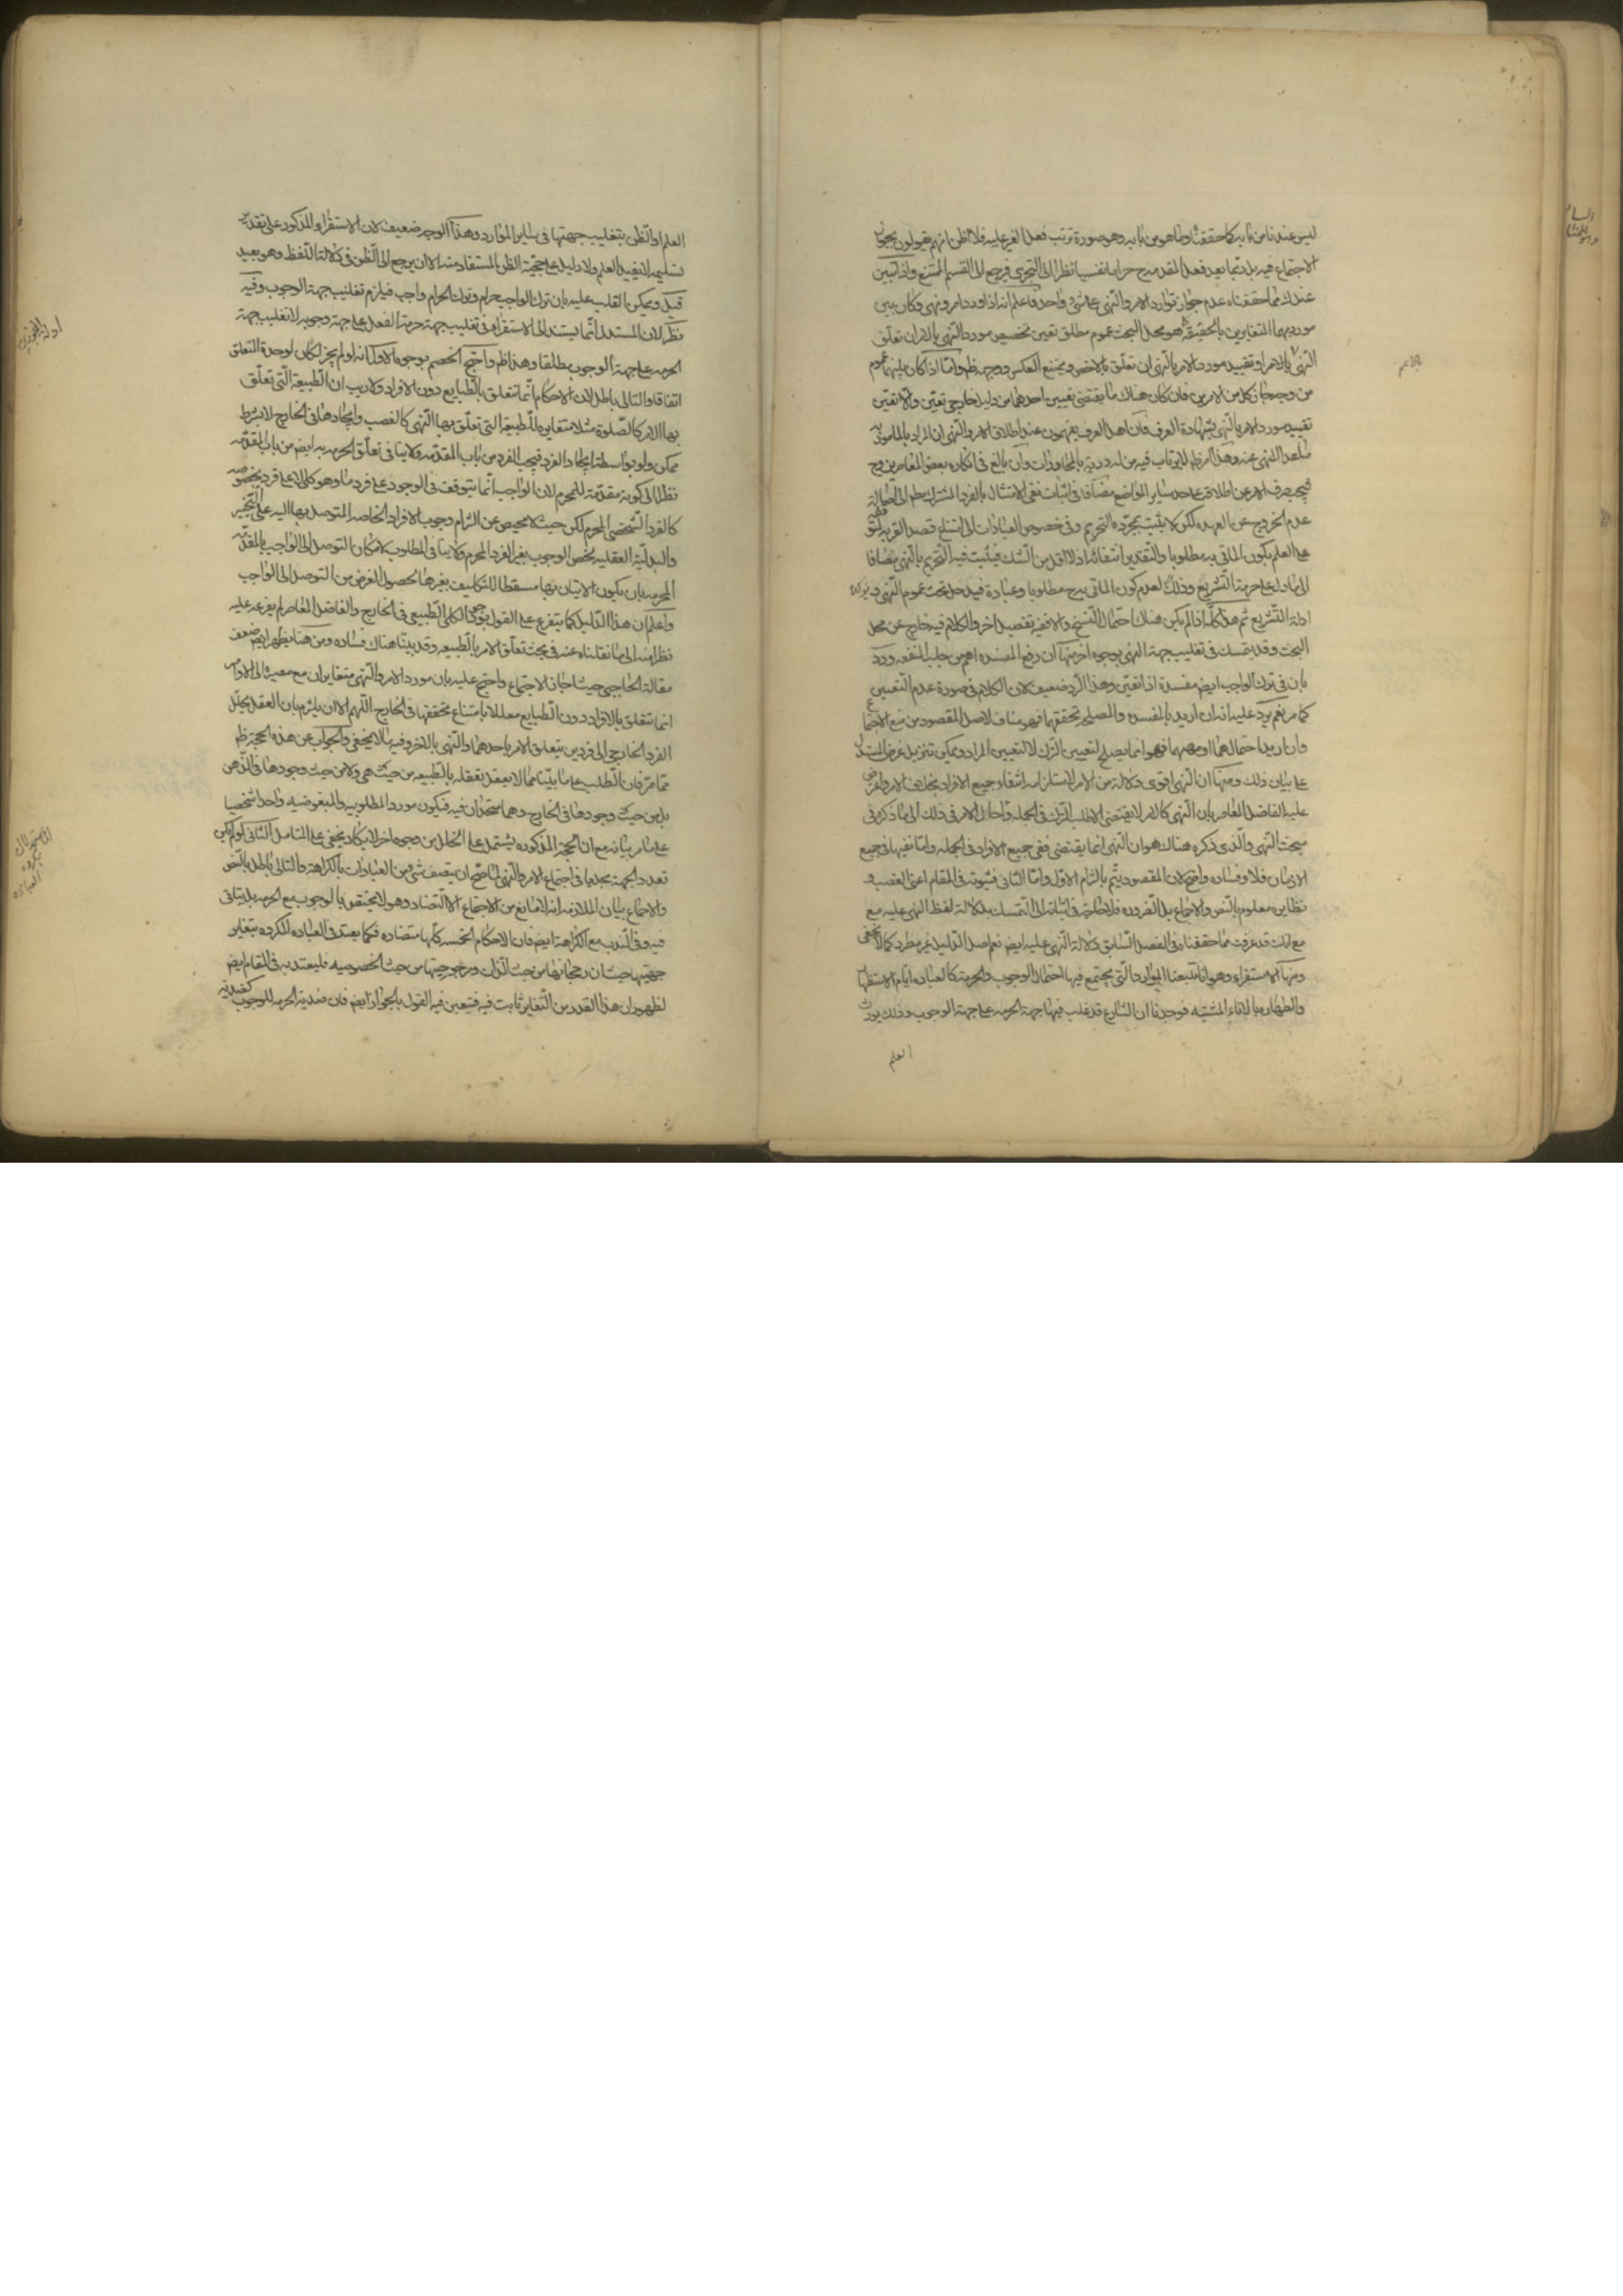 ليس عندنا من بابه كما حققنا وما هو من بابه وهو صورة ترتب فعل الغير عليه فلا اظن انهم يقولون بجواز
الاجتماع فيه بل ربما يعد فعل المقدمة ح حراما نفسيا نظرا الى التجرى فيرجع الى القسم الممتنع واذ تبين
عندك مما حققناه عدم جواز توارد الامر والنهى على شئ واحد فاعلم انه اذا ورد امر ونهى وكان بين
مورديهما المتغايرين بالحقيقة كما هو محل البحث عموم مطلق تعين تخصيص مورد النهى بالامر ان تعلق
النهى بالاعم او تقييد مورد الامر بالنهى ان تعلق بالاخص ويمتنع العكس ووجهه ظم واما اذا كان بينهما عموم
من وجه جاز كل من الامرين فان كان هناك ما يقتضى تعيين احدهما من دليل خارجى تعين والا تعين
تقييد مورد الامر بالنهى بشهادة العرف فان اهل العرف يفهمون عند اطلاق الامر والنهى ان المراد بالمامور به
ما عدا المنهى عنه وهذا امر ظم لا يرتاب فيه من له دربة بالمحاورات وان بالغ في انكاره بعض المعاصرين وح
فيجب صرف الامر عن اطلاقه على حد ساير المواضع مضافا في اثبات نفى الامتثال بالفرد المشترك بينهما الى اصالة
عدم الخروج عن العهدة لكن لا يثبت بمجرده التحريم وفي خصوص العبادات الى امتناع قصد القربة لتوقفه
على العلم بكون الماتى به مطلوبا والتقدير انتفائه اذ لا اقل من الشك فيثبت فيه التحريم بالنهى مضافا
الى ما دل على حرمة التشريع وذلك لعدم كون الماتى به ح مطلوبا وعبادة فيدخل تحت عموم النهى وموارد
ادلة التشريع ثم هذا كله اذا لم يكن هناك احتمال النسخ والا ففيه تفصيل اخر والكلام فيه خارج عن محل
البحث وقد يتمسك في تغليب جهة النهى بوجوه اخر منها ان دفع المفسدة اهم من جلب المنفعة ورد
بان في ترك الواجب ايضم مفسدة اذا تعين وهذا الرد ضعيف لان الكلام في صورة عدم التعيين
كما مر نعم يرد عليه انه ان اريد بالمفسدة والمصلحة تحققهما فهو مناف لاصل المقصود من منع الاجتماع
وان اريد احتمالهما او مهمهما فهو انما يصلح لتعيين الترك لا لتعيين المراد ويمكن تنزيل غرض المستدل
على بيان ذلك ومنها ان النهى اقوى دلالة من الامر لاستلزامه انتفاء جميع الافراد بخلاف الامر واعترض
عليه الفاضل المعاصر بان النهى كالامر لا يقتضى الا طلب الترك في الجملة واحال الامر في ذلك الى ما ذكره في
مبحث النهى والذى ذكره هناك هو ان النهى انما يقتضى نفى جميع الافراد في الجملة واما نفيها في جميع
الازمان فلا وفساده واضح لان المقصود يتم بالتزام الاول واما الثانى فثبوته في المقام اعنى الغصب و
نظايره معلوم بالنص والاجماع بل الضرورة فلا حاجة في اثباته الى التمسك بدلالة لفظ النهى عليه مع
مع انك قد عرفت مما حققناه في الفصل السابق دلالة النهى عليه ايضم نعم اصل الدليل غير مطرد كما لا يخفى
ومنها الاستقراء وهو انا تتبعنا الموارد التى يجتمع فيها احتمال الوجوب والحرمة كالعبادة ايام الاستظهار
والطهارة بالاناء المشتبه فوجدنا ان الشارع قد غلب فيها جهة الحرمة على جهة الوجوب وذلك يورث
العلم
بالاعم
العلم او الظن بتغليب جهتها في ساير الموارد وهذا الوجه ضعيف لان الاستقراء المذكور على تقدير
تسليمه لا يفيد العلم ولا دليل على حجية الظن المستفاد منه الا ان يرجع الى الظن في دلالة اللفظ وهو بعيد
قيل ويمكن القلب عليه بان ترك الواجب حرام وترك الحرام واجب فيلزم تغليب جهة الوجوب وفيه
نظر لان المستدل انما يستند الى الاستقراء في تغليب جهة حرمة الفعل على جهة وجوبه لا تغليب جهة
الحرمة على جهة الوجوب مطلقا وهذا ظم واحتج الخصم بوجوه الاول انه لو لم يجز لكان لوحدة المتعلق
اتفاقا والتالى باطل لان الاحكام انما تتعلق بالطبايع دون الافراد ولا ريب ان الطبيعة التى تعلق
بها الامر كالصلوة مثلا متغايرة للطبيعة التى تعلق بها النهى كالغصب وايجادها في الخارج لا بشرط
ممكن ولو بواسطة ايجاد الفرد فيجب الفرد من باب المقدمة ولا ينافى تعلق الحرمة به ايضم من باب المقدمة
نظرا الى كونه مقدمة للمحرم لان الواجب انما يتوقف في الوجود على فرد ما وهو كلى لا على فرد بخصوصه
كالفرد الشخصى المحرم لكن حيث لا محيص عن التزام وجوب الافراد الخاصة المتوصل بها اليه على التخيير
والبدلية العقلية يخص الوجوب بغير الفرد المحرم ولا ينافى المطلوب لامكان التوصل الى الواجب بالمقدمة
المحرمة بان يكون الاتيان بها مسقطا للتكليف بغيرها لحصول الغرض من التوصل الى الواجب
واعلم ان هذا الدليل كما يتفرع على القول بوجود الكلى الطبيعى في الخارج والفاضل المعاصر لم يفرعه عليه
نظرا منه الى ما نقلناه عنه في بحث تعلق الامر بالطبيعة وقد بينا هناك فساده ومن هنا يظهر ايضم ضعف
مقالة الحاجبى حيث اجاز الاجتماع واحتج عليه بان مورد الامر والنهى متغايران مع مصيره الى ان الاوامر
انما تتعلق بالافراد دون الطبايع معللا بامتناع تحققها في الخارج اللهم الا ان يلتزم بان العقل يحلل
الفرد الخارجى الى فردين يتعلق الامر باحدهما والنهى بالاخر وفيه ما لا يخفى والجواب عن هذه الحجة ظم
مما مر فان الطلب على ما بينا مما لا يعقل تعلقه بالطبيعة من حيث هى ولا من حيث وجودها في الذهن
بل من حيث وجودها في الخارج وهما متحدان فيه فيكون مورد المطلوبية والمبغوضية واحدا شخصيا
على ما مر بيانه مع ان الحجة المذكورة يشتمل على الخلل من وجوه اخر لا يكاد يخفى على المتامل الثانى لو لم يكن
تعدد الجهة مجديا في اجتماع الامر والنهى لما صح ان يتصف شئ من العبادات بالكراهة والتالى باطل بالنص
والاجماع بيان الملازمة انه لا مانع من الاجتماع الا التضاد وهو لا يختص بالوجوب مع الحرمة بل يتاتى
فيه وفي الندب مع الكراهة ايضم فان الاحكام الخمسة كلها متضادة فكما يعتد في العبادة المكروهة بتغاير
جهتيها حيث ان رجحانها من حيث الذات ومرجوحيتها من حيث الخصوصية فليعتد به في المقام ايضم
لظهور ان هذا القدر من التغاير ثابت فيه فتعين فيه القول بالجواز ايضم فان ضدية الحرمة للوجوب كضديته
ادلة المجوزين
الاستدلال
بكروه
العبادة